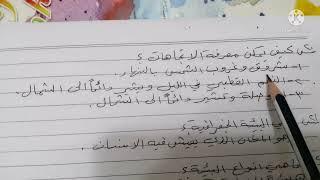 س/ كيف يمكن معرفة الاتجاهات ؟
١- شروق وغروب الشمس بالنهار.
٢- القطبي في الليل ويشير دائماً الى الشمال.
٣- وتشير دائماً الى الشمال.
البيئة الجغرافية ؟
الذي يعيش فيه الانسان.
ماهي انواع البيئة ؟